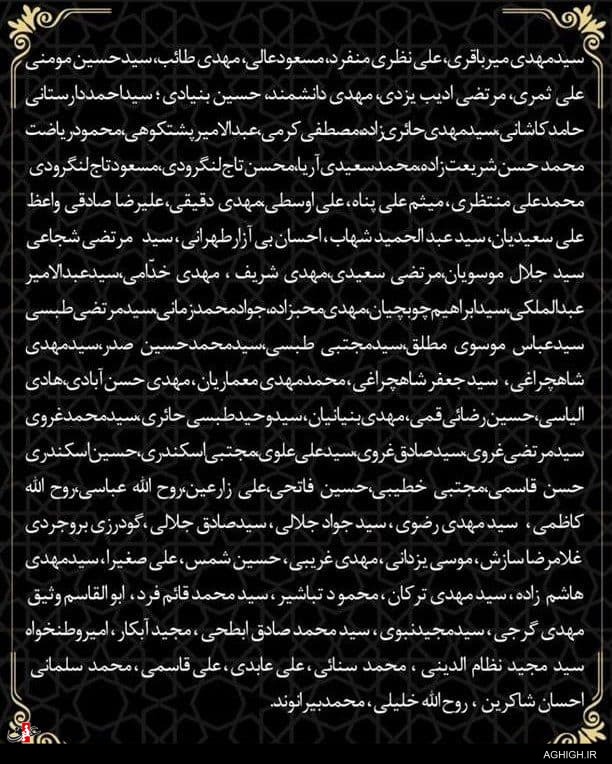 سیدمهدی میرباقری، علی نظری منفرد، مسعودعالی، مهدی طائب، سیدحسین مومنی
علی ثمری، مرتضی ادیب یزدی، مهدی دانشمند، حسین بنیادی؛ سیداحمددارستانی
حامدکاشانی،سیدمهدی حائری‌زاده،مصطفی کرمی،عبدالامیرپشتکوهی،محمودریاضت
محمد حسن شریعت‌زاده،محمدسعیدی آریا،محسن تاج‌لنگرودی،مسعودتاج‌لنگرودی
محمدعلی منتظری، میثم علی پناه، علی اوسطی،مهدی دقیقی، علیرضا صادقی واعظ
علی سعیدیان، سید عبدالحمید شهاب، احسان بی آزارطهرانی، سید مرتضی شجاعی
سید جلال موسویان،مرتضی سعیدی،مهدی شریف ، مهدی خدّامی،سیدعبدالامیر
عبدالملکی،سیدابراهیم چوبچیان،مهدی‌محبزاده،جوادمحمدزمانی،سیدمرتضی طبسی
سیدعباس موسوی مطلق،سیدمجتبی طبسی،سیدمحمدحسین صدر،سیدمهدی
شاهچراغی، سیدجعفر شاهچراغی، محمدمهدی معماریان، مهدی حسن آبادی،هادی
الیاسی، حسین رضائی قمی، مهدی بنیانیان، سیدوحیدطبسی حائری،سیدمحمدغروی
سیدمرتضی غروی،سیدصادق غروی،سیدعلی علوی،مجتبی اسکندری،حسین اسکندری
حسن قاسمی،مجتبی خطیبی،حسین فاتحی،علی زارعین،روح الله عباسی،روح الله
کاظمی ، سید مهدی رضوی ، سید جواد جلالی ، سیدصادق جلالی ، گودرزی بروجردی
غلامرضا سازش، موسی یزدانی، مهدی غریبی، حسین شمس، علی صغیرا، سیدمهدی
هاشم زاده ، سید مهدی ترکان ، محمود تباشیر ، سید محمد قائم فرد، ابوالقاسم وثیق
مهدی گرجی ، سیدمجیدنبوی ، سید محمد صادق ابطحی ، مجید آبکار ، امیروطنخواه
سید مجید نظام الدینی ، محمد سنائی ، علی عابدی ، علی قاسمی ، محمد سلمانی
احسان شاکرین ، روح‌الله خلیلی ، محمدبیرانوند.
AGHIGH.IR